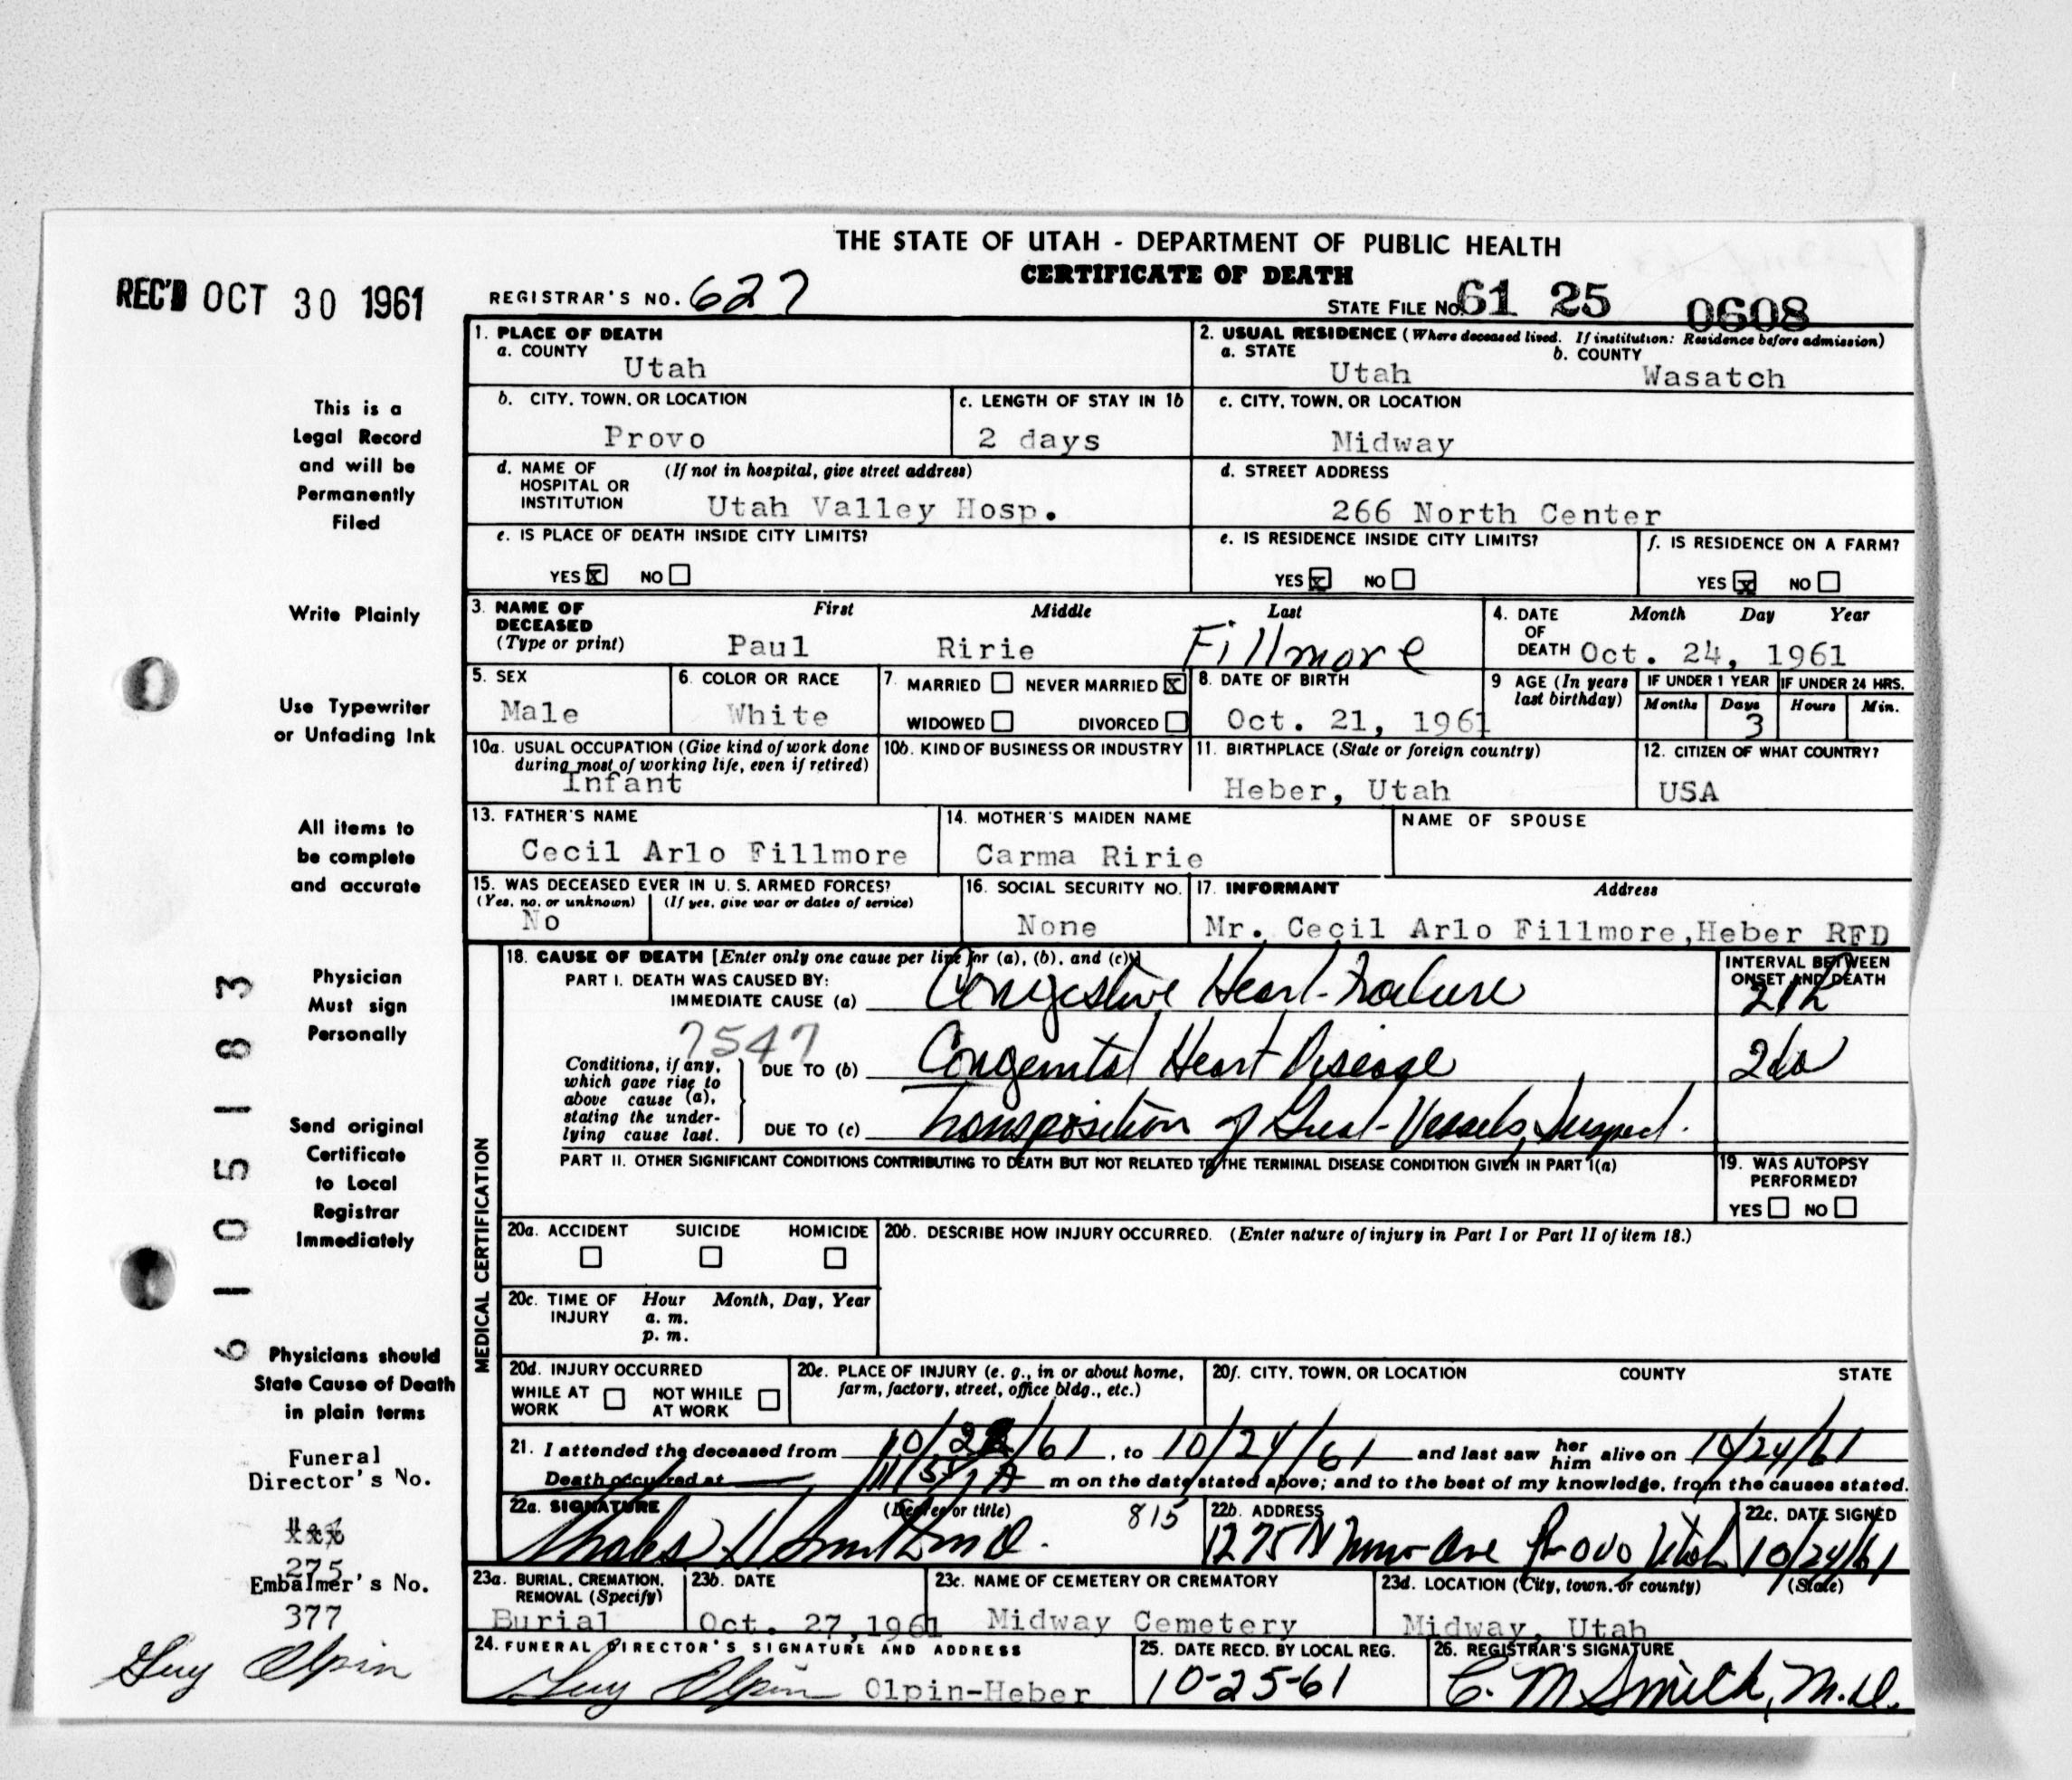 THE STATE OF UTAH - DEPARTMENT OF PUBLIC HEALTH
CERTIFICATE OF DEATH
REC'D OCT 30 1961
REGISTRAR'S NO. 627
STATE FILE No. 61 25 0608
1. PLACE OF DEATH
a. COUNTY
Utah
2. USUAL RESIDENCE (Where deceased lived. If institution: Residence before admission)
a. STATE b. COUNTY
Utah Wasatch
b. CITY, TOWN, OR LOCATION
Provo
c. LENGTH OF STAY IN 1b
2 days
c. CITY, TOWN, OR LOCATION
Midway
d. NAME OF (If not in hospital, give street address)
HOSPITAL OR
INSTITUTION Utah Valley Hosp.
d. STREET ADDRESS
266 North Center
e. IS PLACE OF DEATH INSIDE CITY LIMITS?
YES x NO
e. IS RESIDENCE INSIDE CITY LIMITS?
YES x NO
f. IS RESIDENCE ON A FARM?
YES x NO
3. NAME OF First Middle Last
DECEASED
(Type or print) Paul Ririe Fillmore
4. DATE Month Day Year
OF
DEATH Oct. 24, 1961
5. SEX
Male
6. COLOR OR RACE
White
7. MARRIED NEVER MARRIED x
WIDOWED DIVORCED
8. DATE OF BIRTH
Oct. 21, 1961
9 AGE (In years
last birthday)
IF UNDER 1 YEAR IF UNDER 24 HRS.
Months Days Hours Min.
3
10a. USUAL OCCUPATION (Give kind of work done
during most of working life, even if retired)
Infant
10b. KIND OF BUSINESS OR INDUSTRY
11. BIRTHPLACE (State or foreign country)
Heber, Utah
12. CITIZEN OF WHAT COUNTRY?
USA
13. FATHER'S NAME
Cecil Arlo Fillmore
14. MOTHER'S MAIDEN NAME
Carma Ririe
NAME OF SPOUSE
15. WAS DECEASED EVER IN U. S. ARMED FORCES?
(Yes, no, or unknown) (If yes, give war or dates of service)
No
16. SOCIAL SECURITY NO.
None
17. INFORMANT Address
Mr. Cecil Arlo Fillmore,Heber RFD
MEDICAL CERTIFICATION
18. CAUSE OF DEATH [Enter only one cause per line for (a), (b), and (c)]
PART I. DEATH WAS CAUSED BY:
IMMEDIATE CAUSE (a) Congestive Heart Failure
INTERVAL BETWEEN
ONSET AND DEATH
7547
Conditions, if any,
which gave rise to
above cause (a),
stating the under-
lying cause last.
DUE TO (b) Congenital Heart Disease
DUE TO (c) Transposition of Great Vessels, suspect.
PART II. OTHER SIGNIFICANT CONDITIONS CONTRIBUTING TO DEATH BUT NOT RELATED TO THE TERMINAL DISEASE CONDITION GIVEN IN PART I(a)
19. WAS AUTOPSY
PERFORMED?
YES NO
20a. ACCIDENT SUICIDE HOMICIDE
20b. DESCRIBE HOW INJURY OCCURRED. (Enter nature of injury in Part I or Part II of item 18.)
20c. TIME OF Hour Month, Day, Year
INJURY a. m.
p. m.
20d. INJURY OCCURRED
WHILE AT NOT WHILE
WORK AT WORK
20e. PLACE OF INJURY (e. g., in or about home,
farm, factory, street, office bldg., etc.)
20f. CITY, TOWN, OR LOCATION COUNTY STATE
21. I attended the deceased from 10/22/61, to 10/24/61 and last saw her him alive on 10/24/61
Death occurred at A m on the date stated above; and to the best of my knowledge, from the causes stated.
22a. SIGNATURE (Degree or title) 815
Smith MD.
22b. ADDRESS
1275 N Ave Provo Utah
22c. DATE SIGNED
10/24/61
23a. BURIAL, CREMATION,
REMOVAL (Specify)
Burial
23b. DATE
Oct. 27,1961
23c. NAME OF CEMETERY OR CREMATORY
Midway Cemetery
23d. LOCATION (City, town, or county) (State)
Midway, Utah
24. FUNERAL DIRECTOR'S SIGNATURE AND ADDRESS
Guy Olpin Olpin-Heber
25. DATE RECD. BY LOCAL REG.
10-25-61
26. REGISTRAR'S SIGNATURE
C. M Smith, M.D.
This is a
Legal Record
and will be
Permanently
Filed
Write Plainly
Use Typewriter
or Unfading Ink
All items to
be complete
and accurate
Physician
Must sign
Personally
Send original
Certificate
to Local
Registrar
Immediately
Physicians should
State Cause of Death
in plain terms
Funeral
Director's No.
275
Embalmer's No.
377
Guy Olpin
6105183